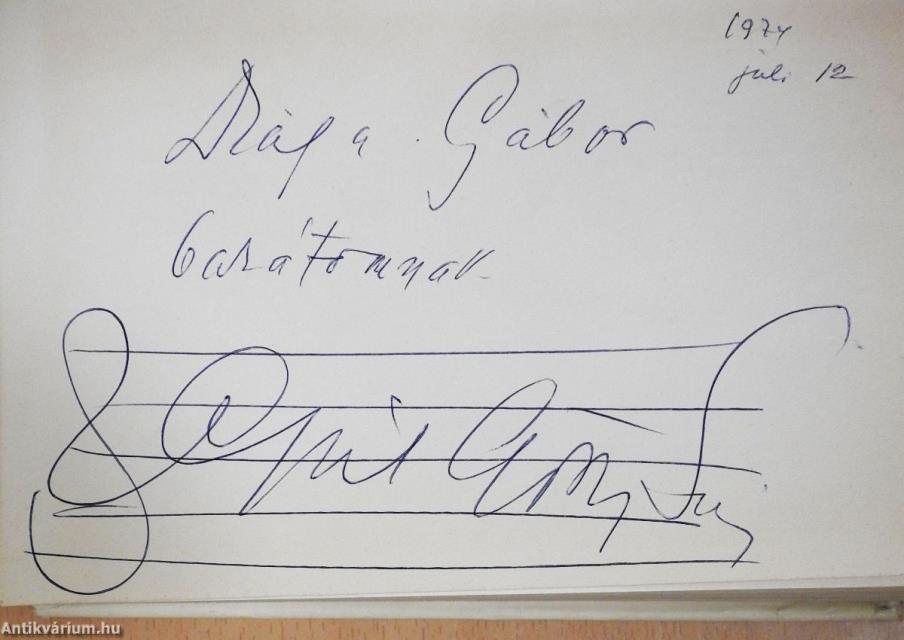 1974
júli 12
Drága Gábor
barátomnak
Antikvárium.hu